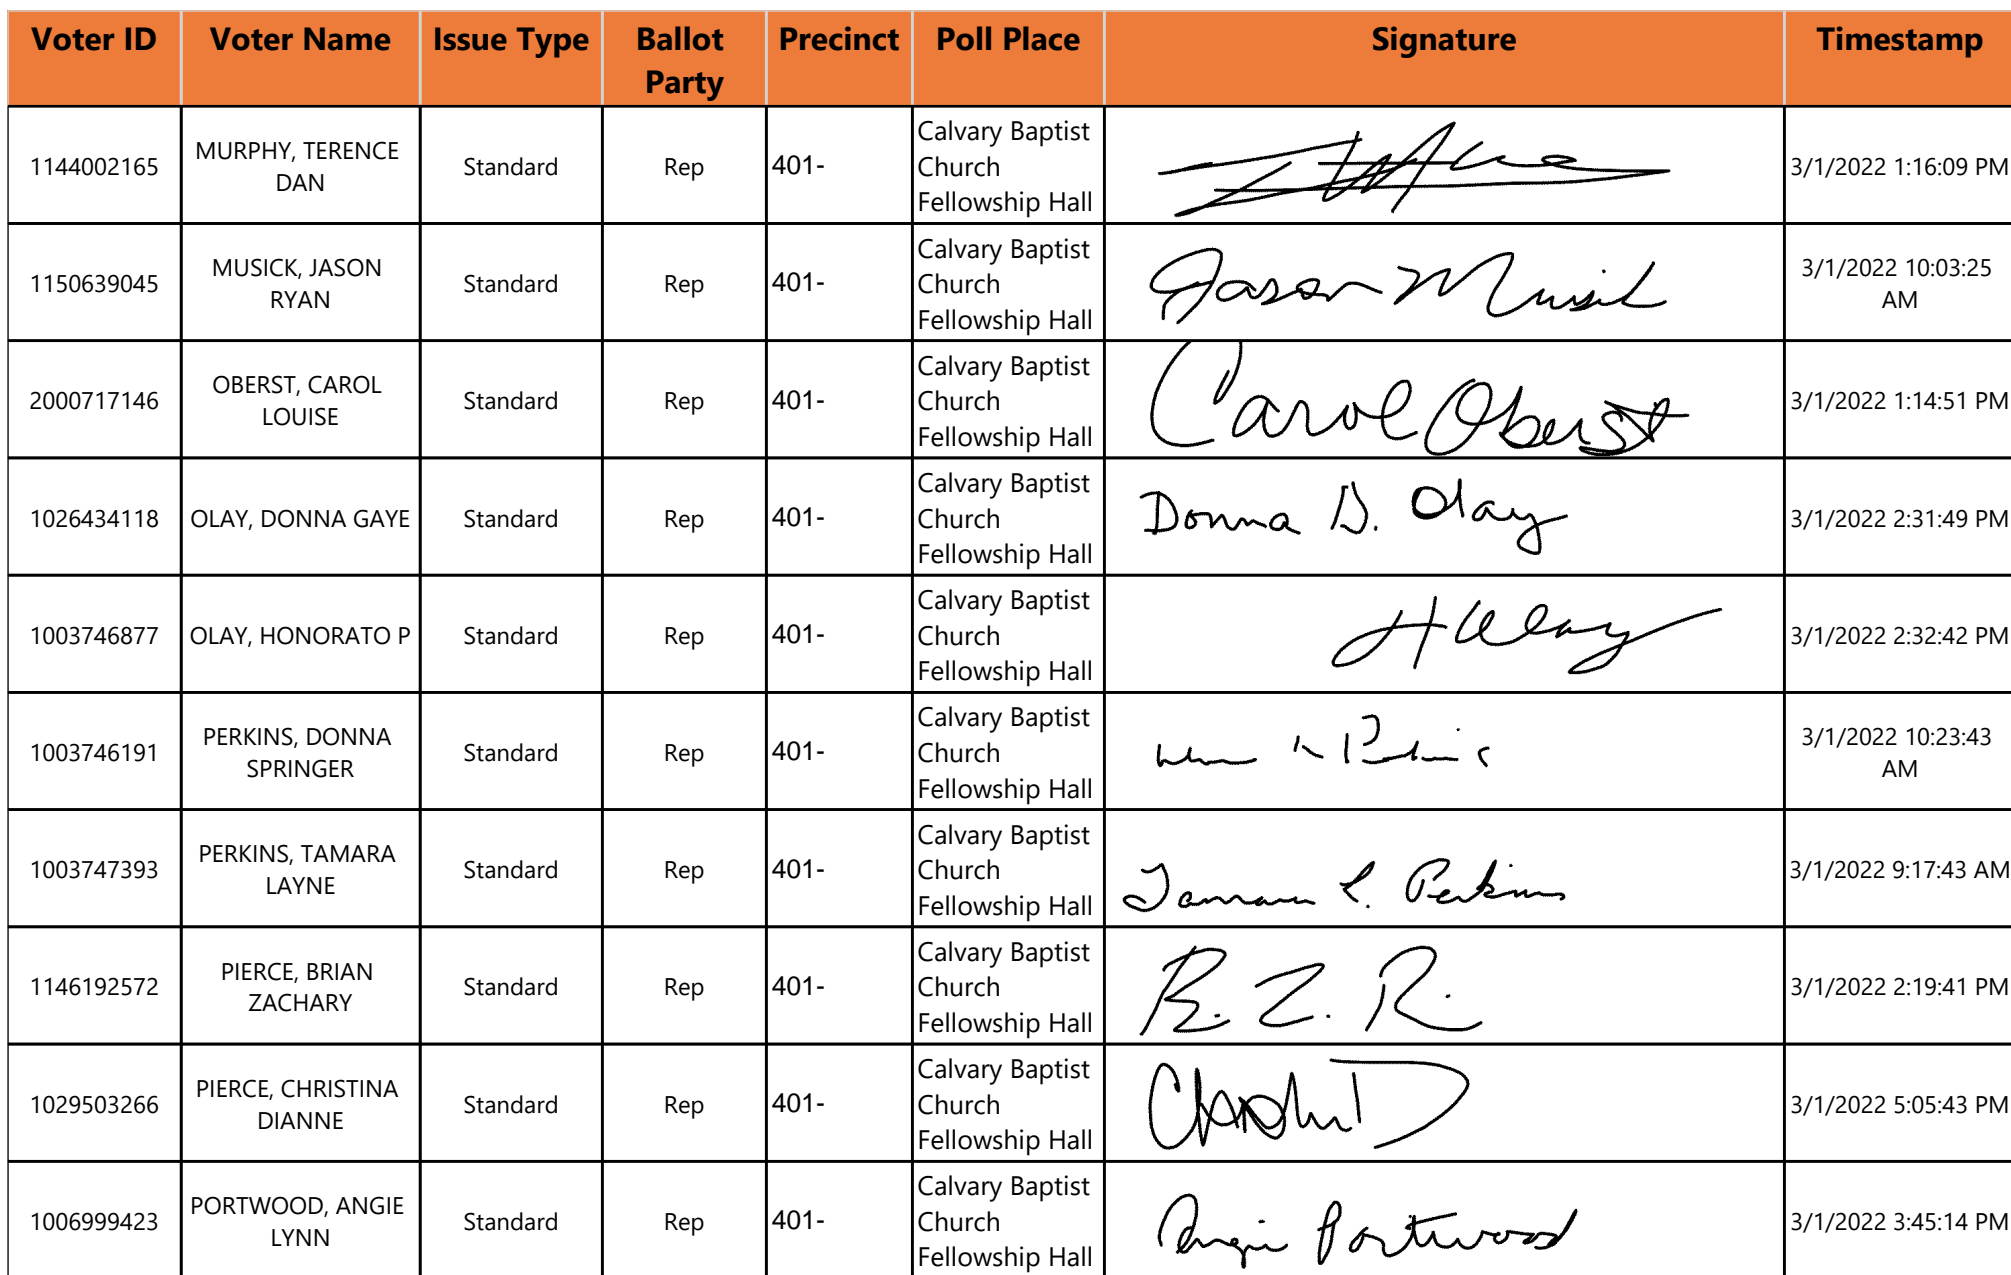 Voter ID Voter Name Issue Type Ballot Party Precinct Poll Place Signature Timestamp
1144002165 MURPHY, TERENCE DAN Standard Rep 401- Calvary Baptist Church Fellowship Hall 3/1/2022 1:16:09 PM
1150639045 MUSICK, JASON RYAN Standard Rep 401- Calvary Baptist Church Fellowship Hall Jason Musick 3/1/2022 10:03:25 AM
2000717146 OBERST, CAROL LOUISE Standard Rep 401- Calvary Baptist Church Fellowship Hall Carol Oberst 3/1/2022 1:14:51 PM
1026434118 OLAY, DONNA GAYE Standard Rep 401- Calvary Baptist Church Fellowship Hall Donna G. Olay 3/1/2022 2:31:49 PM
1003746877 OLAY, HONORATO P Standard Rep 401- Calvary Baptist Church Fellowship Hall H Olay 3/1/2022 2:32:42 PM
1003746191 PERKINS, DONNA SPRINGER Standard Rep 401- Calvary Baptist Church Fellowship Hall 3/1/2022 10:23:43 AM
1003747393 PERKINS, TAMARA LAYNE Standard Rep 401- Calvary Baptist Church Fellowship Hall Tamara L. Perkins 3/1/2022 9:17:43 AM
1146192572 PIERCE, BRIAN ZACHARY Standard Rep 401- Calvary Baptist Church Fellowship Hall B. Z. P. 3/1/2022 2:19:41 PM
1029503266 PIERCE, CHRISTINA DIANNE Standard Rep 401- Calvary Baptist Church Fellowship Hall 3/1/2022 5:05:43 PM
1006999423 PORTWOOD, ANGIE LYNN Standard Rep 401- Calvary Baptist Church Fellowship Hall Angie Portwood 3/1/2022 3:45:14 PM